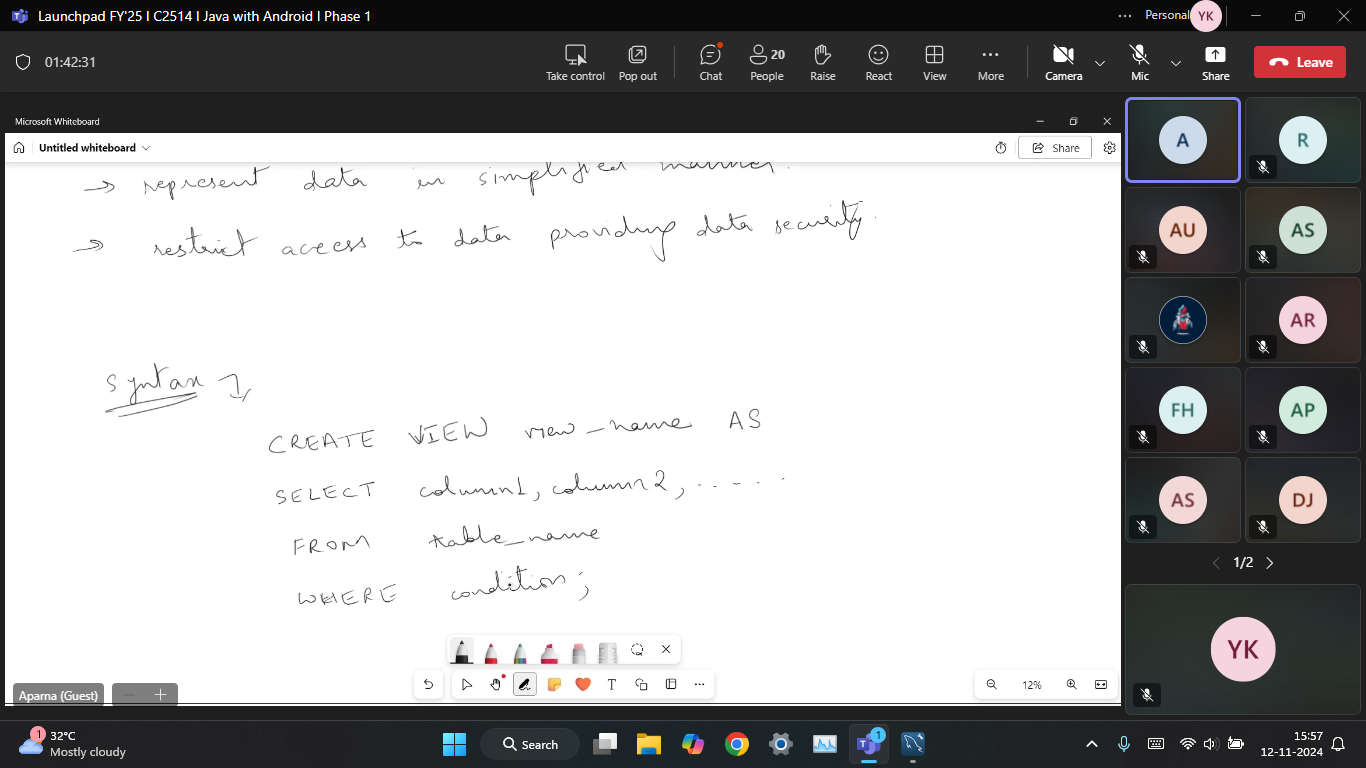 Launchpad FY'25 I C2514 I Java with Android I Phase 1
Personal
YK
01:42:31
Take control
Pop out
Chat
20
People
Raise
React
View
More
Camera
Mic
Share
Leave
Microsoft Whiteboard
Untitled whiteboard
Share
→ represent data in simplified manner.
→ restrict access to data providing data security.
Syntax
CREATE VIEW view_name AS
SELECT column1, column2, ......
FROM table_name
WHERE condition;
12%
Aparna (Guest)
A
R
AU
AS
AR
FH
AP
AS
DJ
1/2
YK
1
32°C
Mostly cloudy
Search
1
15:57
12-11-2024